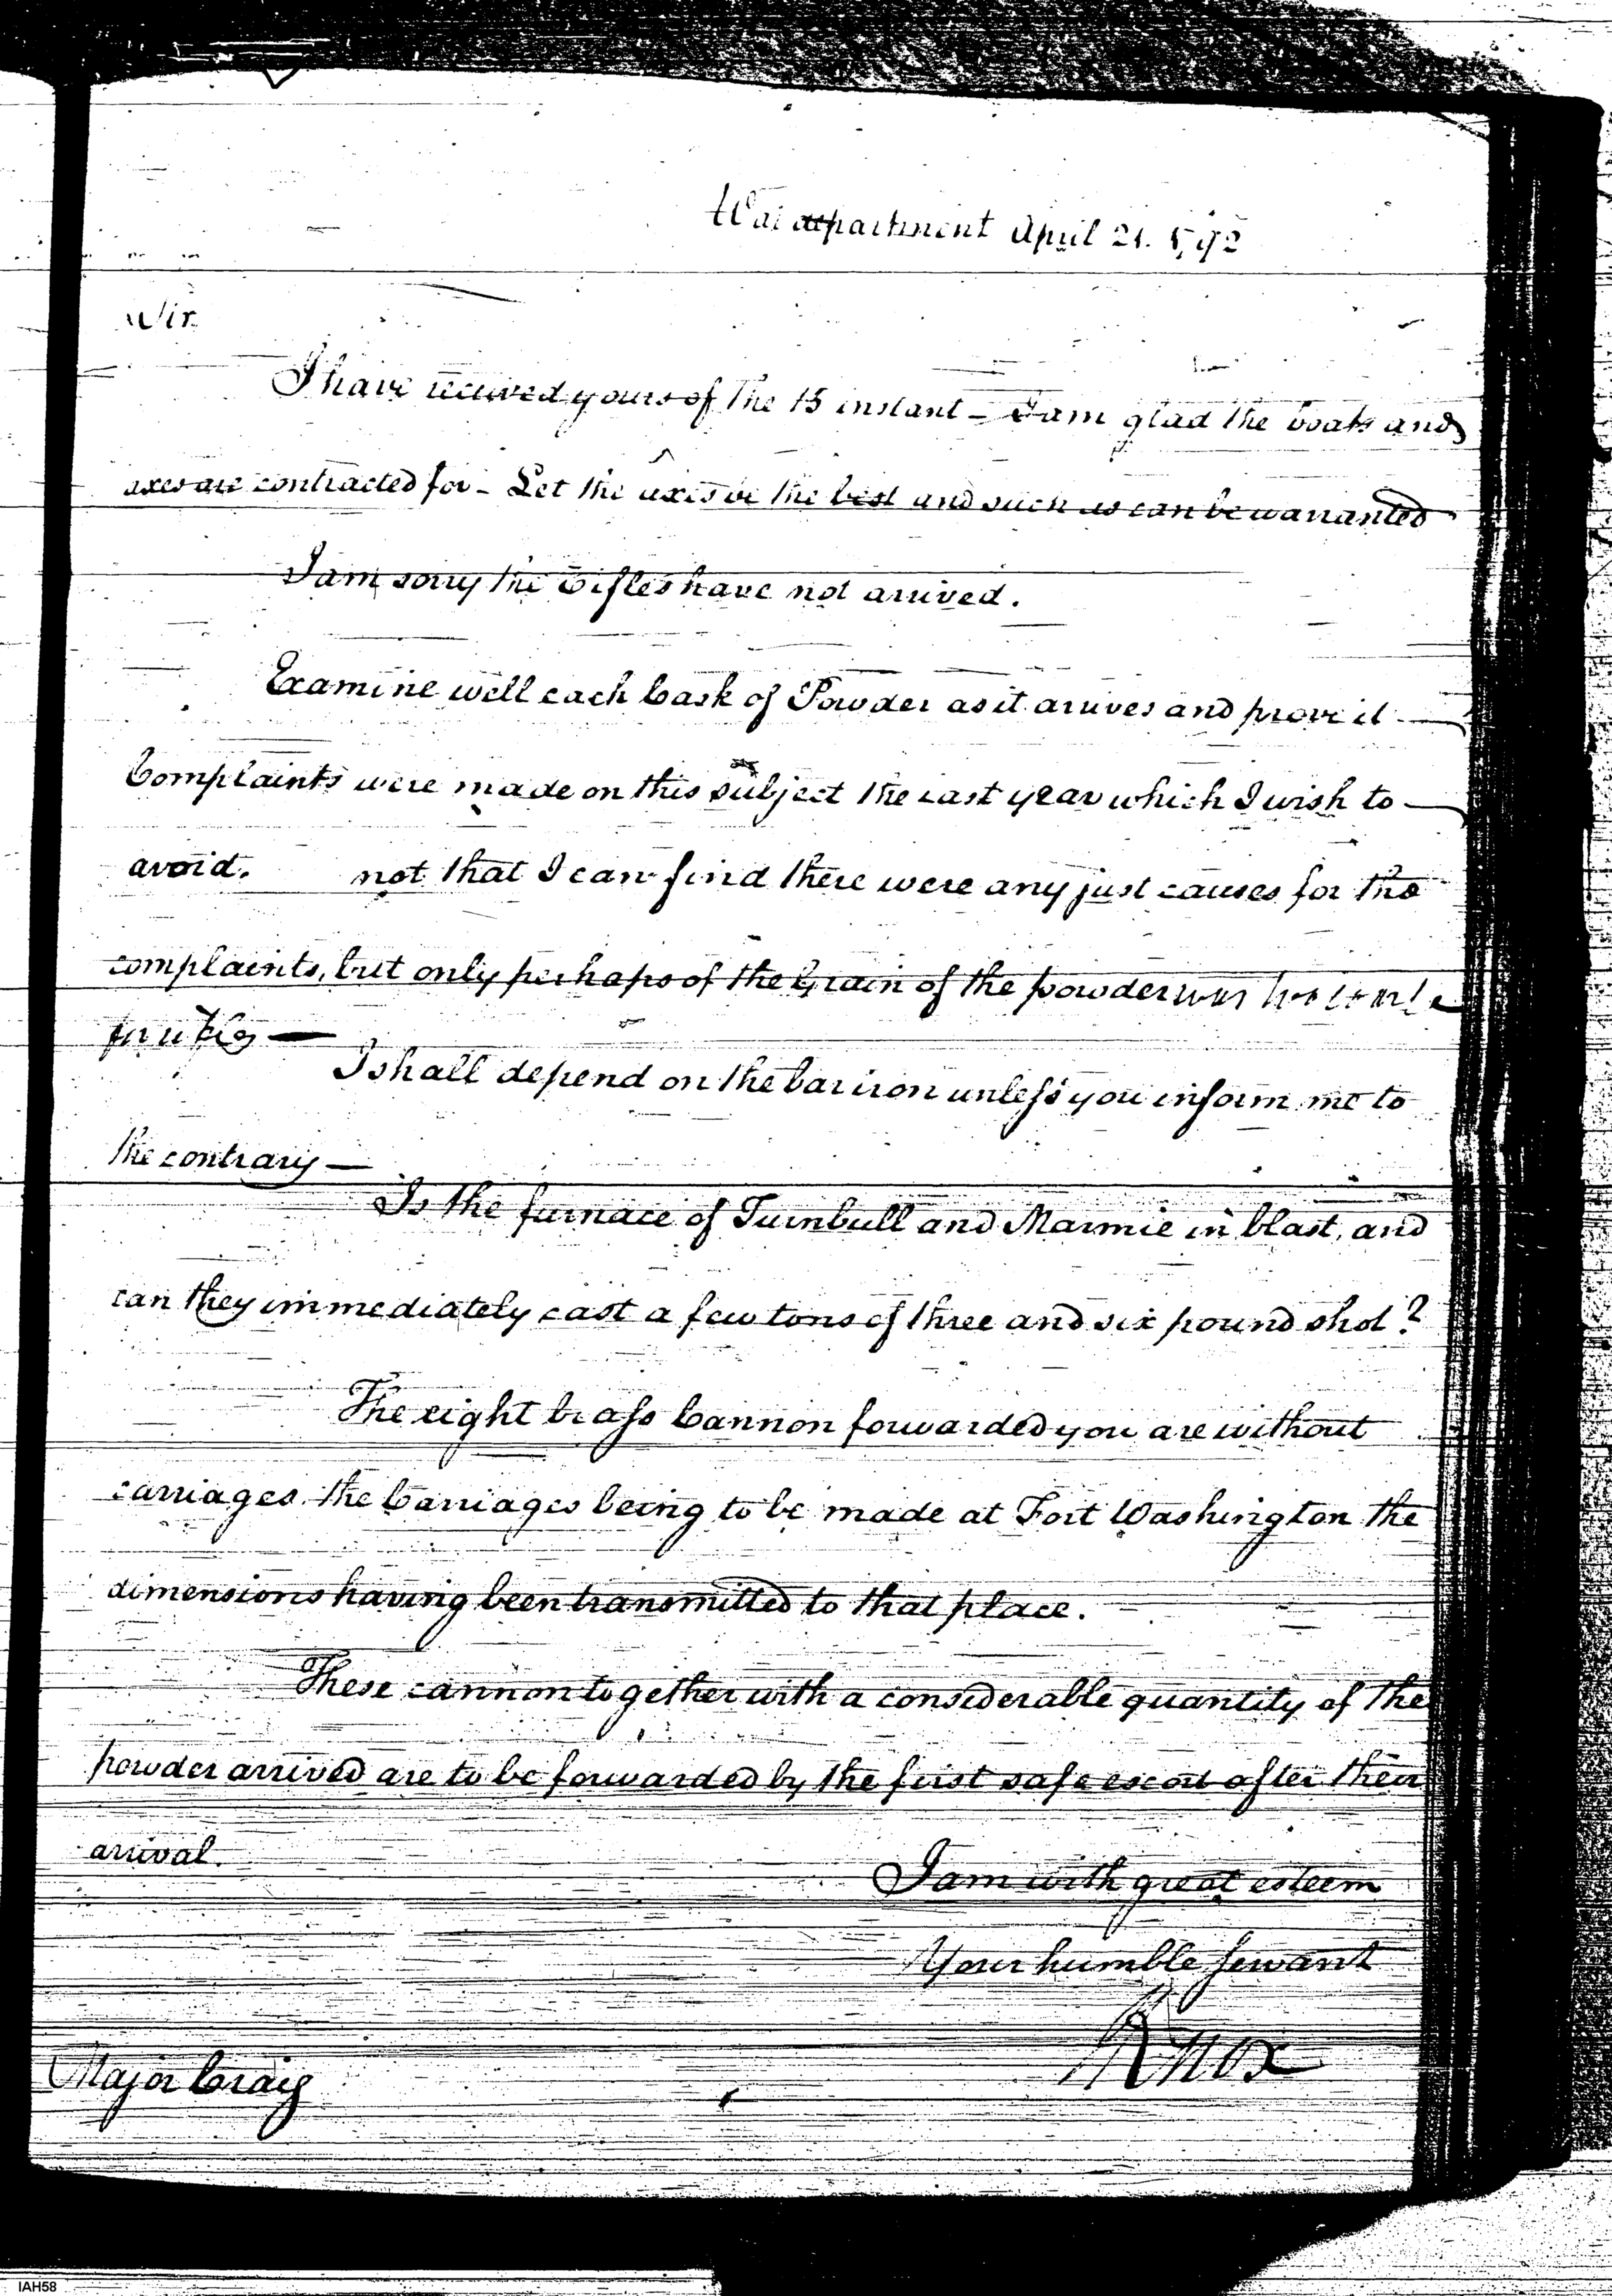 War department April 21. 1792
Sir
I have received yours of the 15 instant – I am glad the boats and
axes are contracted for – Let the axes be the best and such as can be warranted
I am sorry the Rifles have not arrived.
Examine well each Cask of Powder as it arrives and prove it
Complaints were made on this subject the last year which I wish to
avoid. not that I can find there were any just causes for the
complaints, but only perhaps of the Grain of the powder was too
I shall depend on the bar iron unless you inform me to
the contrary —
Is the furnace of Turnbull and Marmie in blast, and
can they immediately cast a few tons of three and six pound shot?
The eight brass Cannon forwarded you are without
carriages. the Carriages being to be made at Fort Washington the
dimensions having been transmitted to that place.
These cannon together with a considerable quantity of the
powder arrived are to be forwarded by the first safe escort after their
arrival.
I am with great esteem
Your humble Servant
Knox
Major Craig
IAH58